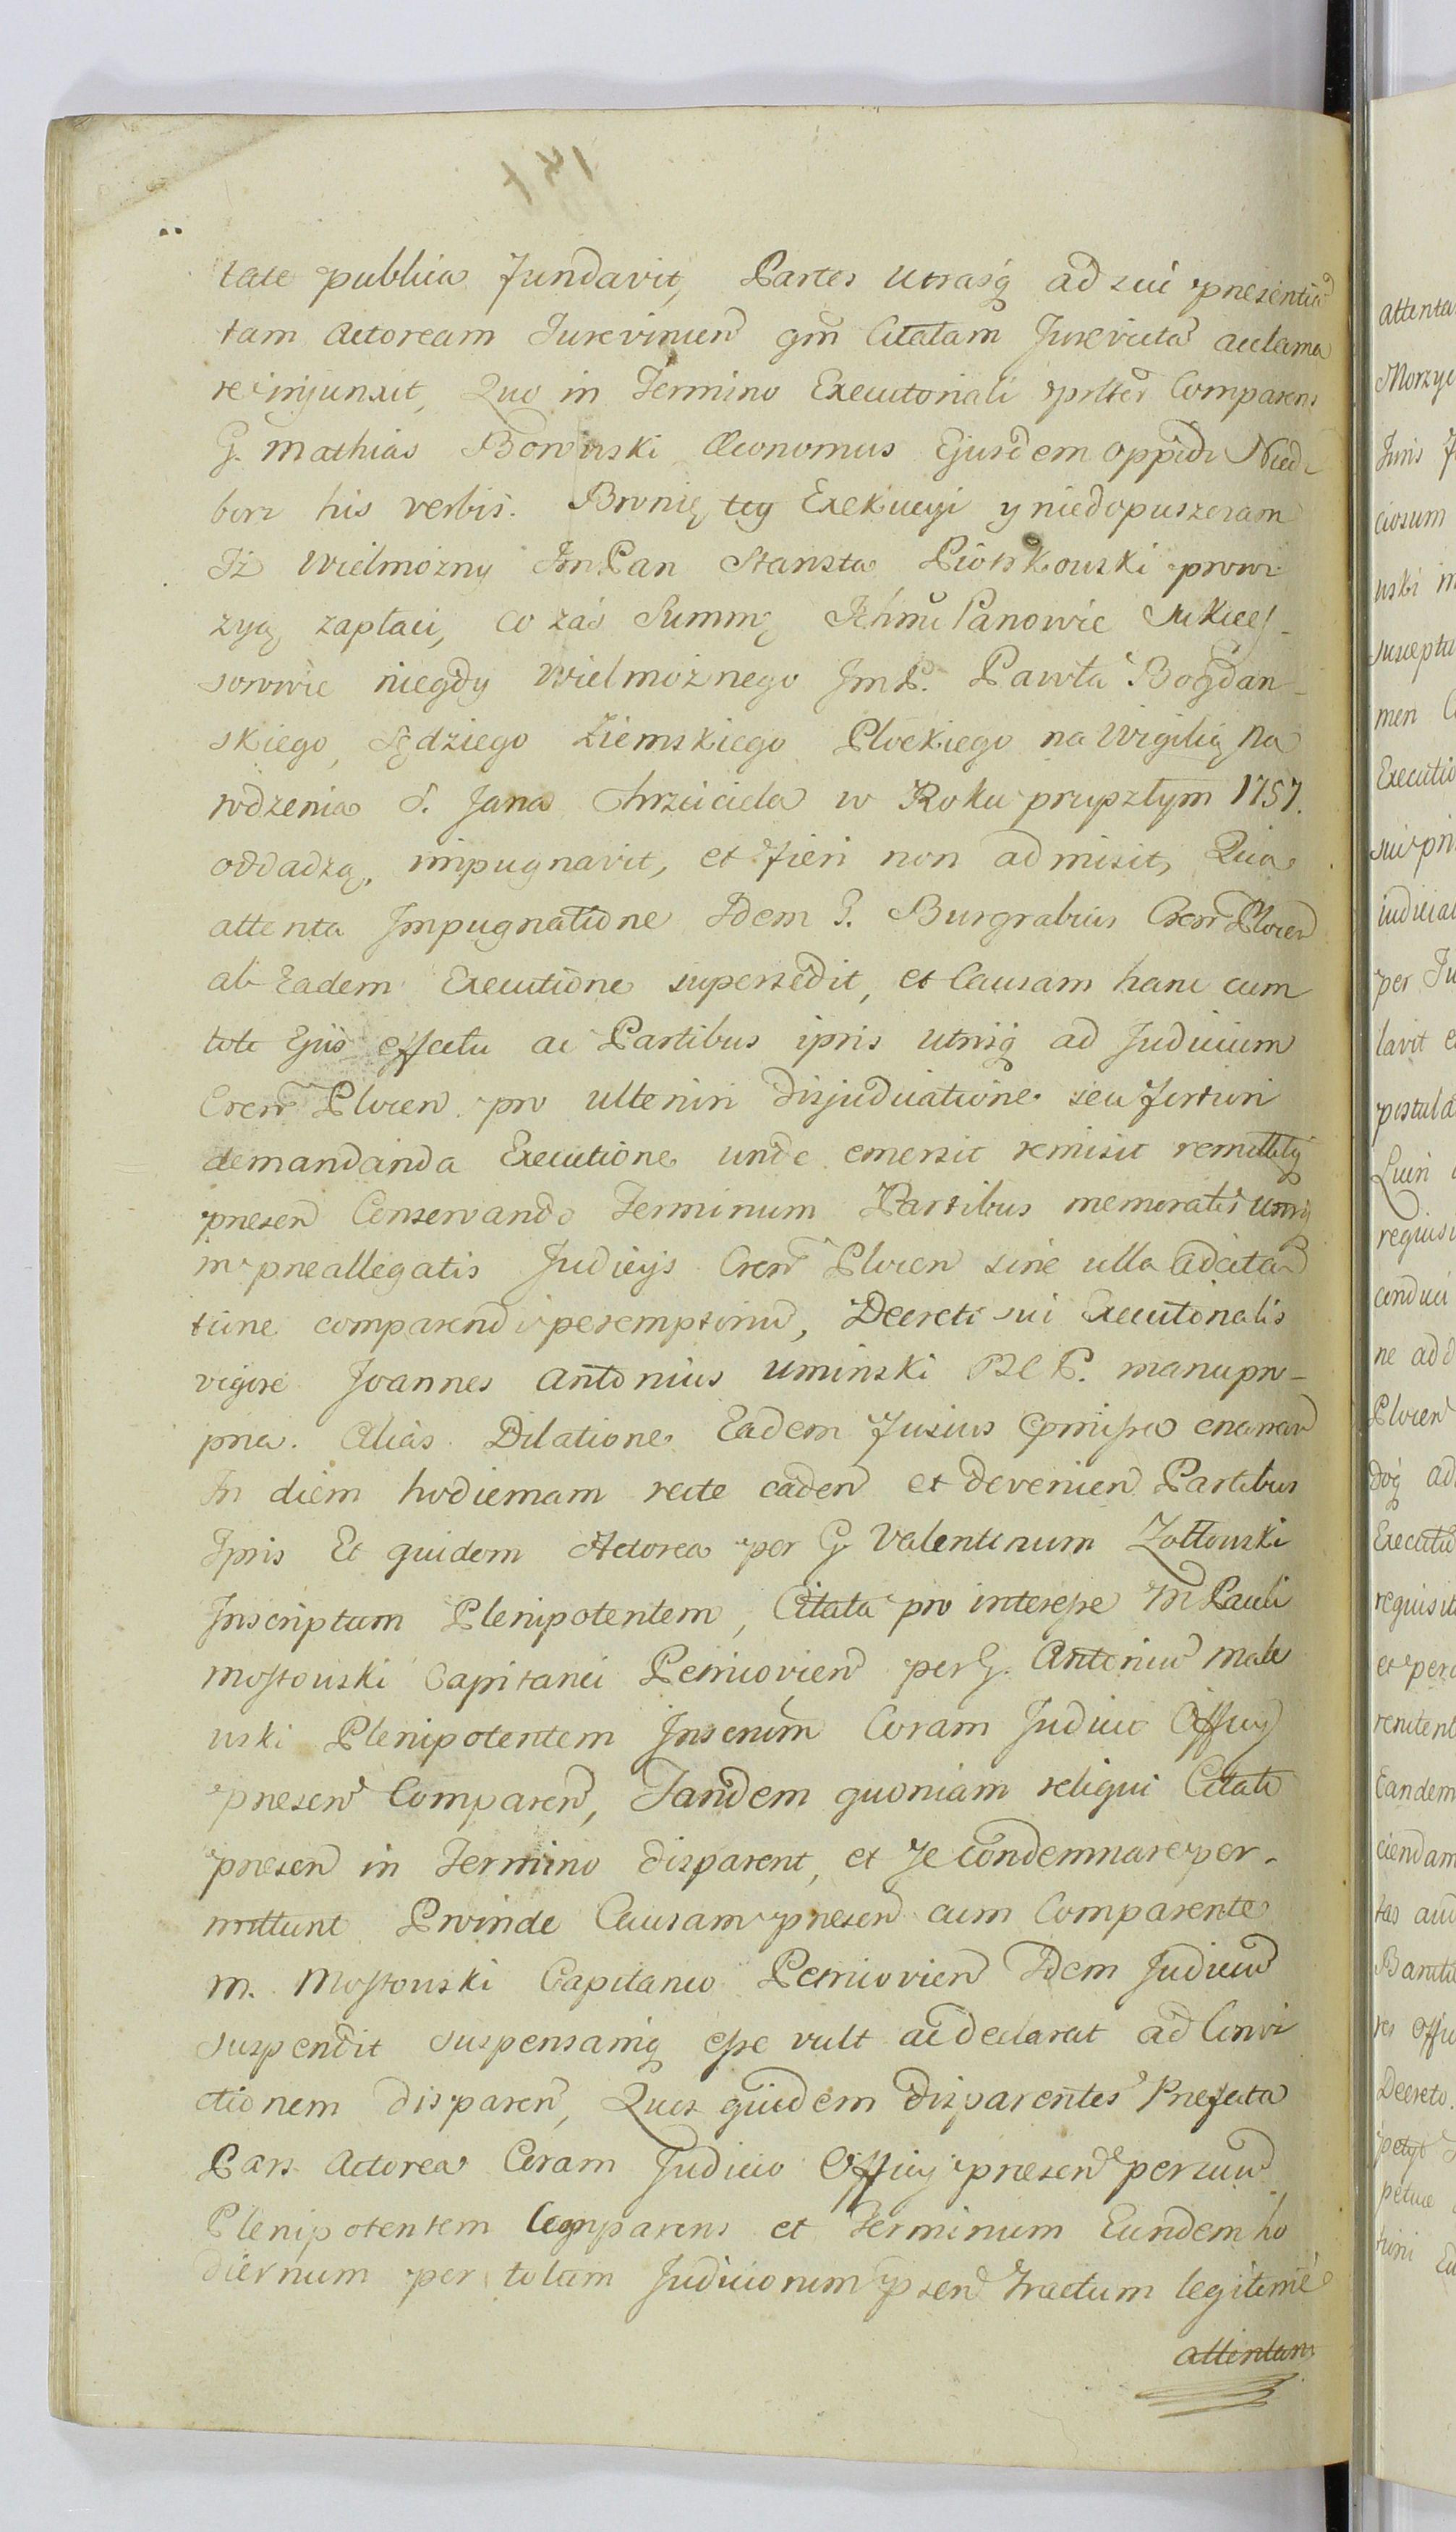 tate publica Fundavit, Partes utrasq ad sui presentia
tam Actoream Jurevincen qm Citatam Jurevicta acclama
re injunxit, Quo in Termino Executoriali Comparens
G. Mathias Borowski Œconomus Ejusdem oppidi Niedz
borz his verbis. Bronię tey Exekucyi y niedopuszczam
Iż Wielmozny ImPan Starosta Piotrkowski prowi
zyą zapłaci, co zaś Summę Ichmć Panowie Sukces
sorowie niegdy Wielmoznego ImP. Pawła Bogdan
skiego, Sędziego Ziemskiego Płockiego na Wigilią Na
rodzenia S. Jana Chrzciciela w Roku przyszłym 1757.
oddadzą, impugnavit, et fieri non admisit, Qua
attenta Impugnatione Idem G. Burgrabius Cren Plocen
ab Eadem Executione supersedit, et Causam hanc cum
toto Ejus effectu ac Partibus ipsis utrisq ad Judicium
Cren Plocen pro ulteriori disjudicatione seu fortiori
demandanda Executione unde emersit remisit remittitq
presen Conservando Terminum Partibus memoratis utrisq
in preallegatis Judicijs Cren Plocen sine ulla adcita
tione comparendi peremptoriu, Decreti sui Executorialis
vigore Joannes Antonius Uminski BCP. manu pro-
pria. Alias Dilatione Eadem fusius enarran
In diem hodiernam recte caden et devenien Partibus
Ipsis Et quidem Actorea per G Valentinum Zołtowski
Inscriptum Plenipotentem, Citata pro interesse M Pauli
Mostowski Capitanei Petricovien per G. Antoniu Male
wski Plenipotentem Inscrium Coram Judicio Officij
presen Comparen, Tandem quoniam reliqui Citati
presen in Termino disparent, et se condemnare per-
mittunt Proinde Causam presen cum Comparente
M. Mostowski Capitaneo Petricovien Idem Judiciu
suspendit suspensamq esse vult ac declarat ad Convi
ctionem disparen, Quos quidem disparentes Prefata
Pars Actorea Coram Judicio Officij presen per suu
Plenipotentem Comparens et Terminum Eundem ho
diernum per totum Judiciorum psen tractum legitime
attentans